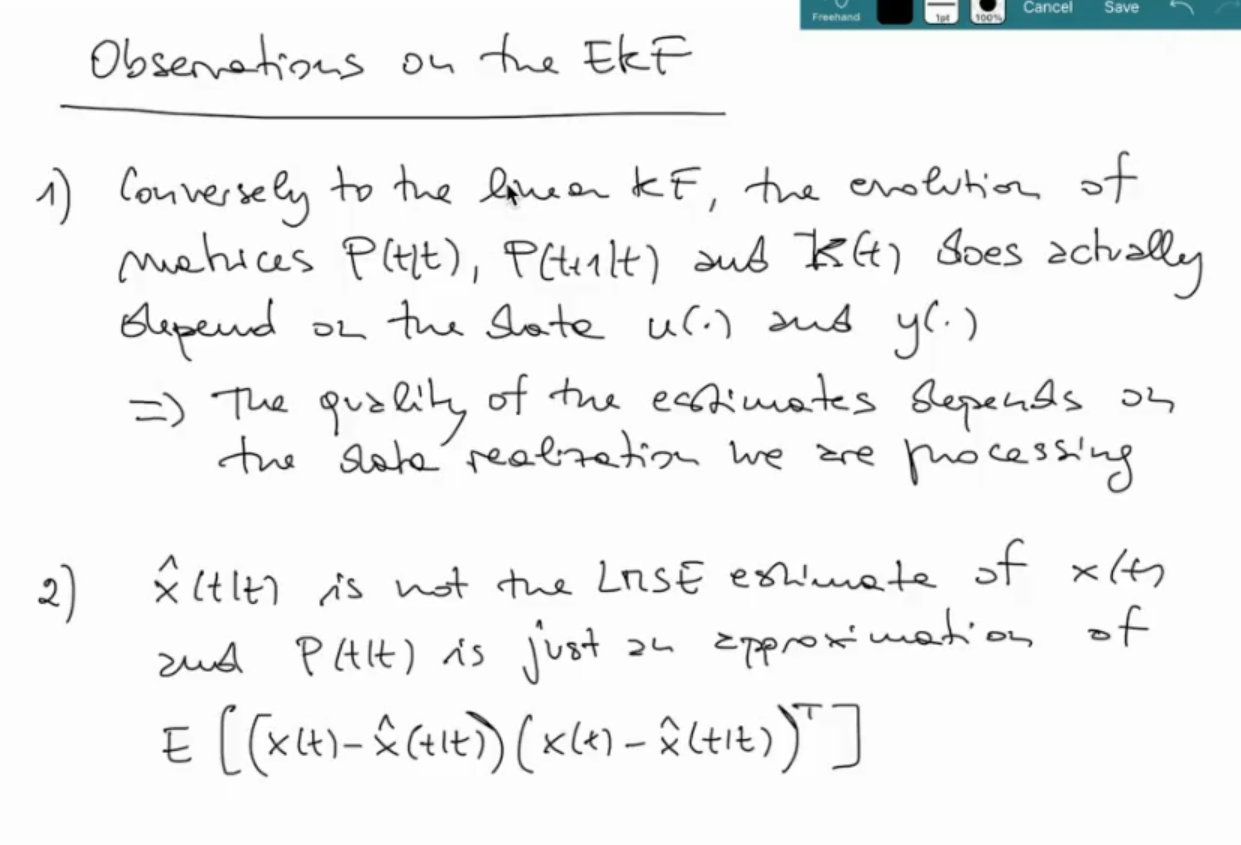 Freehand 1pt 100% Cancel Save
Observations on the EKF
1) Conversely to the linear KF, the evolution of
matrices P(t|t), P(t+1|t) and K(t) does actually
depend on the data u(.) and y(.)
=> The quality of the estimates depends on
the data realization we are processing
2) x̂(t|t) is not the LMSE estimate of x(t)
and P(t|t) is just an approximation of
E [(x(t)-x̂(t|t))(x(t)-x̂(t|t))ᵀ]